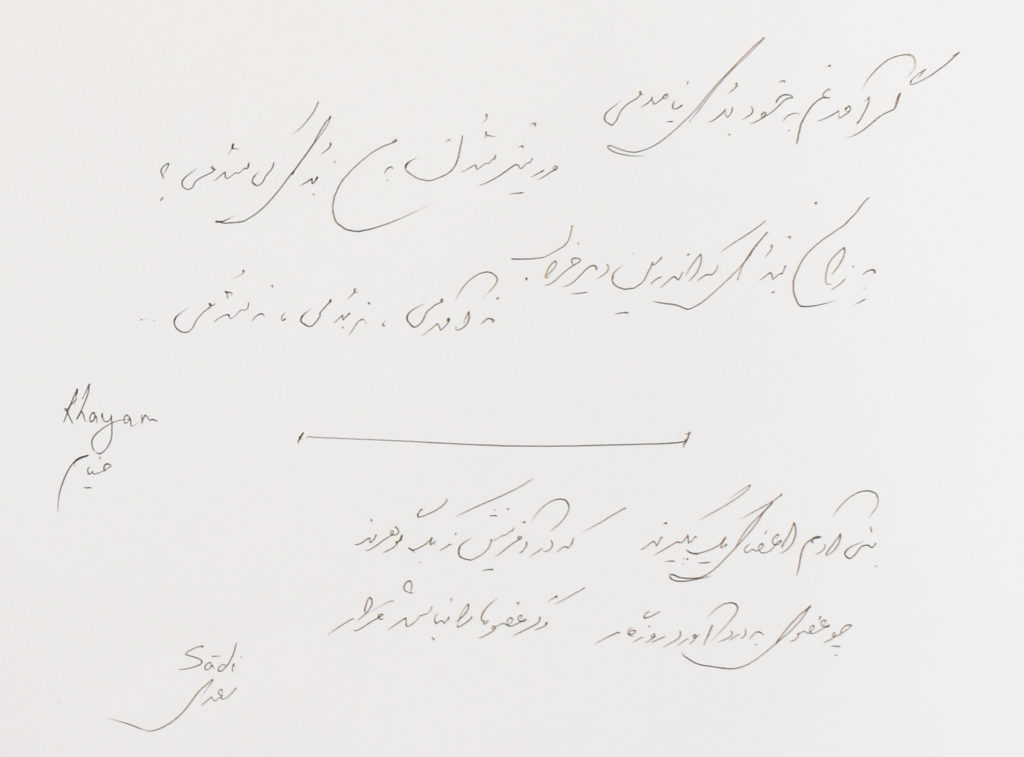 گر آمدنم به خود بدی نامدمی
ور نیز شدن به من بدی کی شدمی ؟
به زان نبدی که اندرین دیر خراب
نه آمدمی ، نه بدمی ، نه شدمی ...
Khayam
خیام
بنی آدم اعضای یک پیکرند که در آفرینش ز یک گوهرند
چو عضوی به درد آورد روزگار دگر عضوها را نماند قرار
Sādi
سعدی